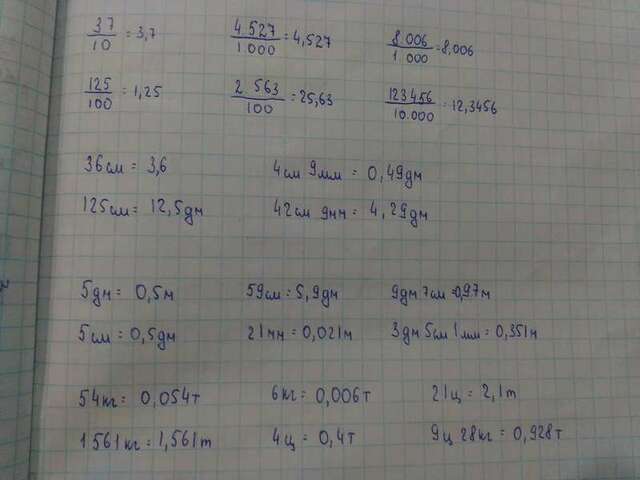 37/10 = 3,7 4.527/1.000 = 4,527 8.006/1.000 = 8,006
125/100 = 1,25 2 563/100 = 25,63 123456/10.000 = 12,3456
36см = 3,6 4см 9мм = 0,49дм
125см = 12,5дм 42см 9мм = 4,29дм
5дм = 0,5м 59см = 5,9дм 9дм 7см = 0,97м
5см = 0,5дм 21мм = 0,021м 3дм 5см 1мм = 0,351м
54кг = 0,054т 6кг = 0,006т 21ц = 2,1т
1561кг = 1,561т 4ц = 0,4т 9ц 28кг = 0,928т